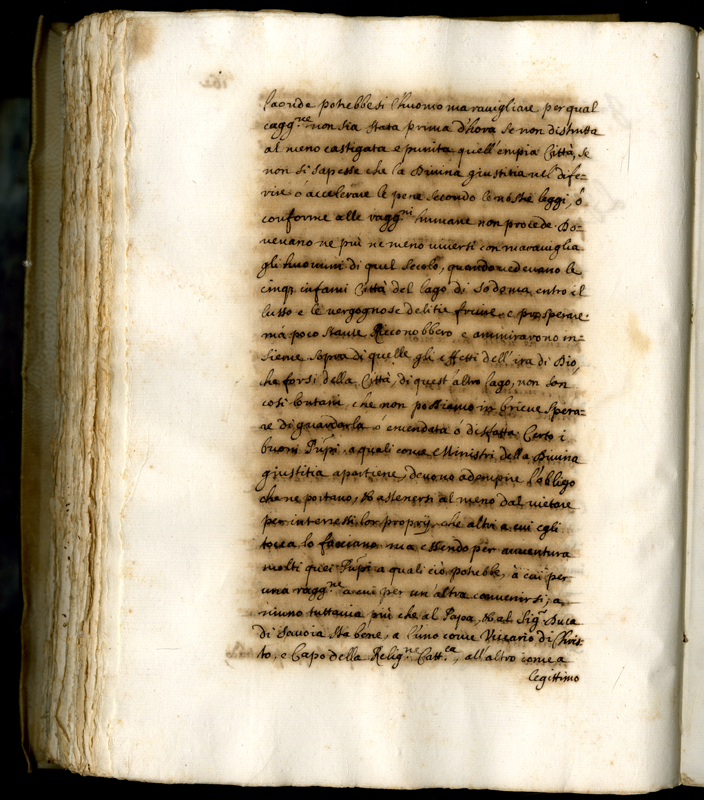 laonde potrebbesi l'huomo maravigliare per qual
cagg.ne non sia stata prima d'hora se non distrutta
al meno castigata e punita quell'empia Città, se
non si sapesse che la Divina giustitia nel dife=
rire ò accelerare le pene secondo le nostre leggi, ò
conforme alle ragg.ni humane non procede. Do=
vevano ne più ne meno viversi con maraviglia
gli huomini di quel secolo, quando vedevano le
cinq; infami Città del lago di Sodoma entro il
lusso e le vergognose delitie fruire e prosperare.
mà poco stante Riconobbero e ammirarono in=
sieme sopra di quelle gli effetti dell'ira di Dio,
che forsi della Città, di quest'altro lago, non son
così lontani, che non possiamo in brieve spera=
re di guardarla ò emendata ò disfatta. Certo i
buoni Pn̄pi, a quali come Ministri della Divina
giustitia apartiene, devono adempire l'obligo
che ne portano, & astenersi al meno dal vietare
per interessi lor proprij, che altri a cui egli
tocca lo facciano. ma essendo per avventura
molti quei Pn̄pi a quali ciò potrebbe, à cui per
una ragg.ne a cui per un'altra convenirsi, a
niuno tuttavia più che al Papa, & al Sig.r Duca
di Savoia sta bene, a l'uno come Vicario di Chris=
to, e Capo della Relig.ne Catt.ca, all'altro come a
legittimo